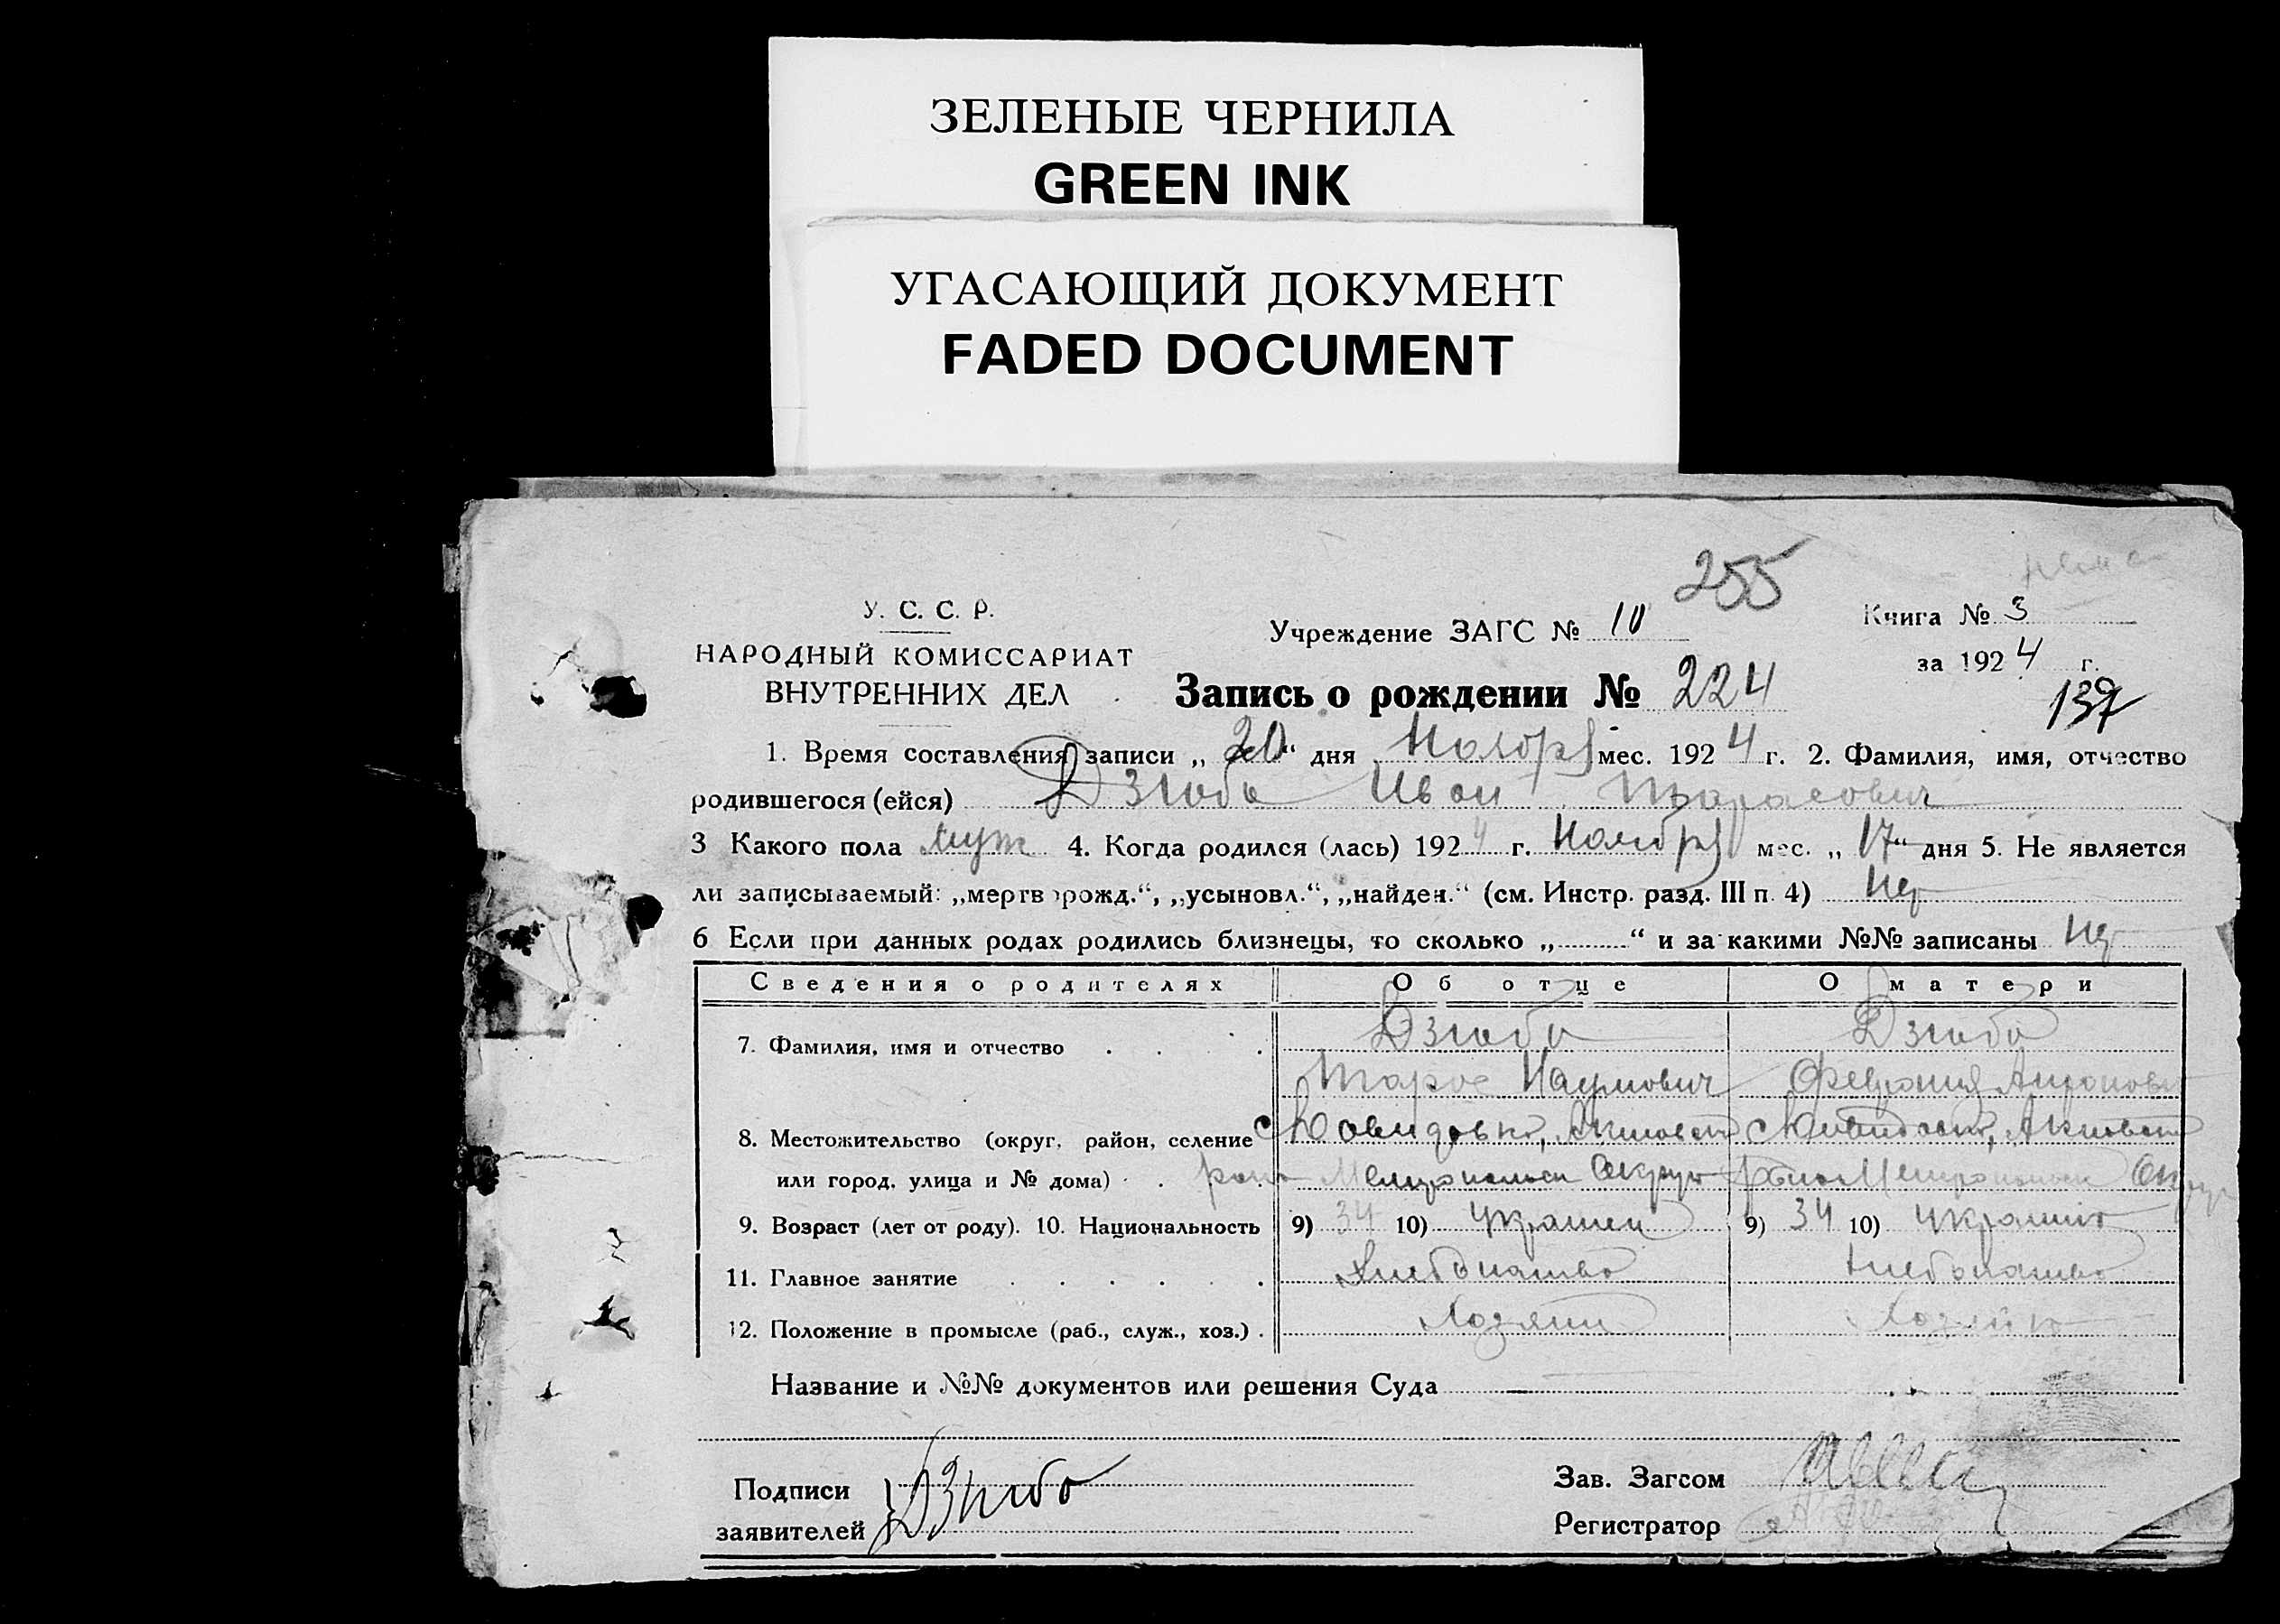 ЗЕЛЕНЫЕ ЧЕРНИЛА
GREEN INK
УГАСАЮЩИЙ ДОКУМЕНТ
FADED DOCUMENT
255
У. С. С. Р.
НАРОДНЫЙ КОМИССАРИАТ
ВНУТРЕННИХ ДЕЛ
Учреждение ЗАГС № 10
Книга № 3
за 1924 г.
Запись о рождении № 224
137
1. Время составления записи „20“ дня Ноября мес. 1924 г. 2. Фамилия, имя, отчество
родившегося (ейся) Дзюба Иван Тарасович
3 Какого пола муж 4. Когда родился (лась) 1924 г. Ноября мес. „17“ дня 5. Не является
ли записываемый: „мертворожд.“, „усыновл.“, „найден.“ (см. Инстр. разд. III п. 4) Нет
6 Если при данных родах родились близнецы, то сколько „ “ и за какими №№ записаны Нет
Сведения о родителях Об отце О матери
7. Фамилия, имя и отчество Дзюба Дзюба
Тарас Наумович
8. Местожительство (округ, район, селение
или город, улица и № дома) Округ
9. Возраст (лет от роду). 10. Национальность 9) 34 10) Украинец 9) 34 10)
11. Главное занятие Хлебопашество Хлебопашество
12. Положение в промысле (раб., служ., хоз.) Хозяин Хозяйка
Название и №№ документов или решения Суда
Подписи заявителей Дзюба
Зав. Загсом
Регистратор